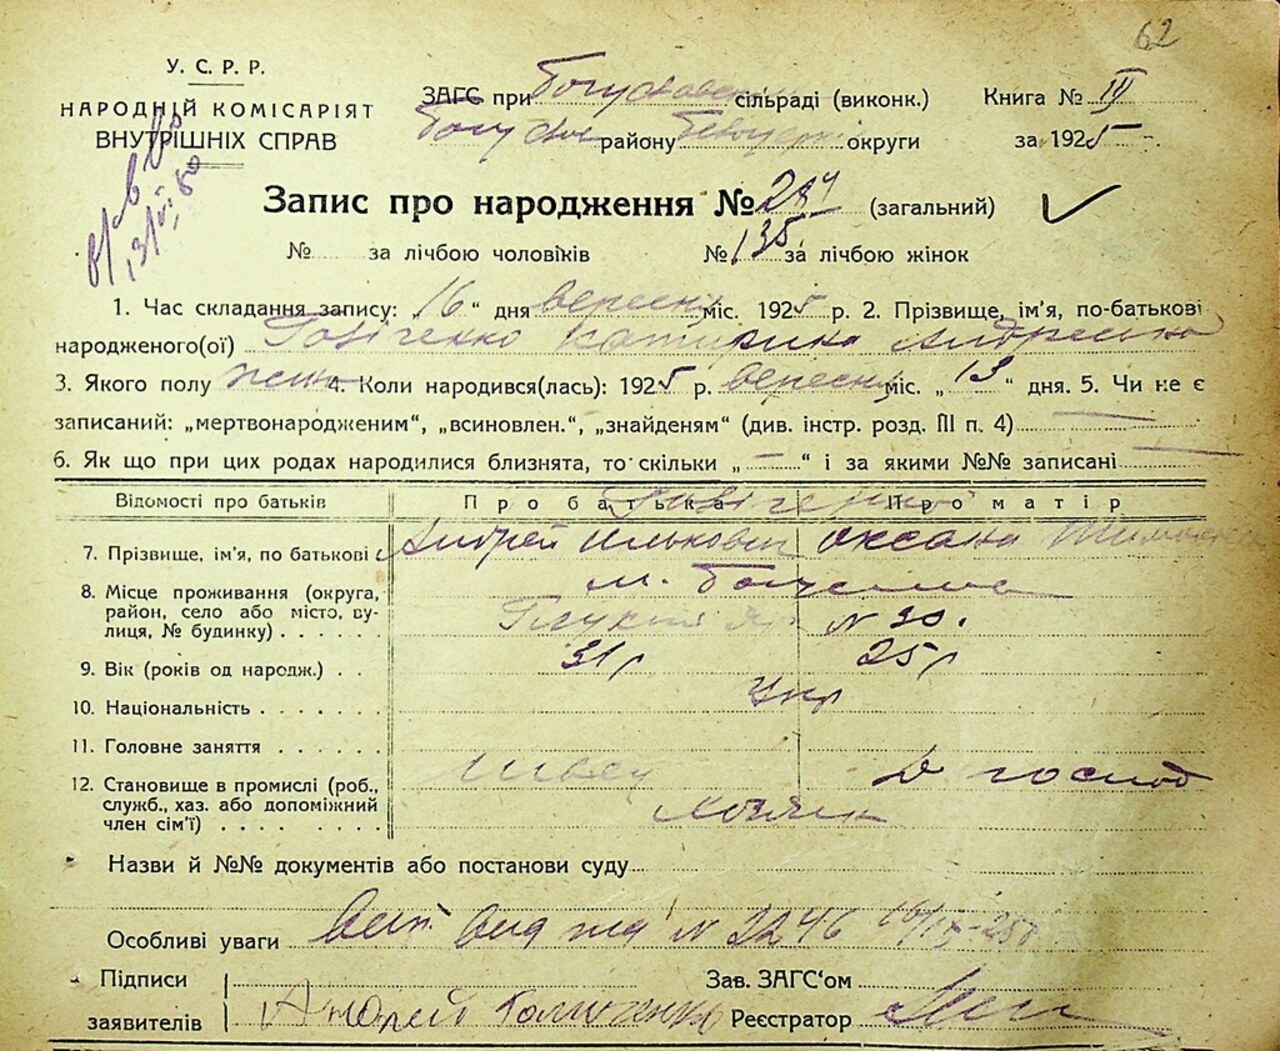 62
У. С. Р. Р.
НАРОДНІЙ КОМІСАРІЯТ
ВНУТРІШНІХ СПРАВ
ЗАГС при Богуславській сільраді (виконк.)
району округи
Книга № III
за 1925
Запис про народження № 284 (загальний)
№ за лічбою чоловіків № 135 за лічбою жінок
1. Час складання запису: „16“ дня вересня міс. 1925 р. 2. Прізвище, ім'я, по-батькові
народженого(ої) Катерина Андреевна
3. Якого полу жін 4. Коли народився(лась): 1925 р. вересня міс. „13“ дня. 5. Чи не є
записаний: „мертвонародженим“, „всиновлен.“, „знайденям“ (див. інстр. розд. III п. 4)
6. Як що при цих родах народилися близнята, то скільки „—“ і за якими №№ записані —
Відомості про батьків Про батька Про матір
7. Прізвище, ім'я, по батькові Андрей Ількович Оксана
8. Місце проживання (округа, район, село або місто, вулиця, № будинку) м. Богуслав
Яр N 30.
9. Вік (років од народж.) 31 р 25 р
10. Національність Укр
11. Головне заняття
12. Становище в промислі (роб., служб., хаз. або допоміжний член сім'ї) Швец Д господ
хозяин
Назви й №№ документів або постанови суду
Особливі уваги вид N 2246 16/IX-25
Підписи
заявителів Андрей
Зав. ЗАГС'ом
Реєстратор